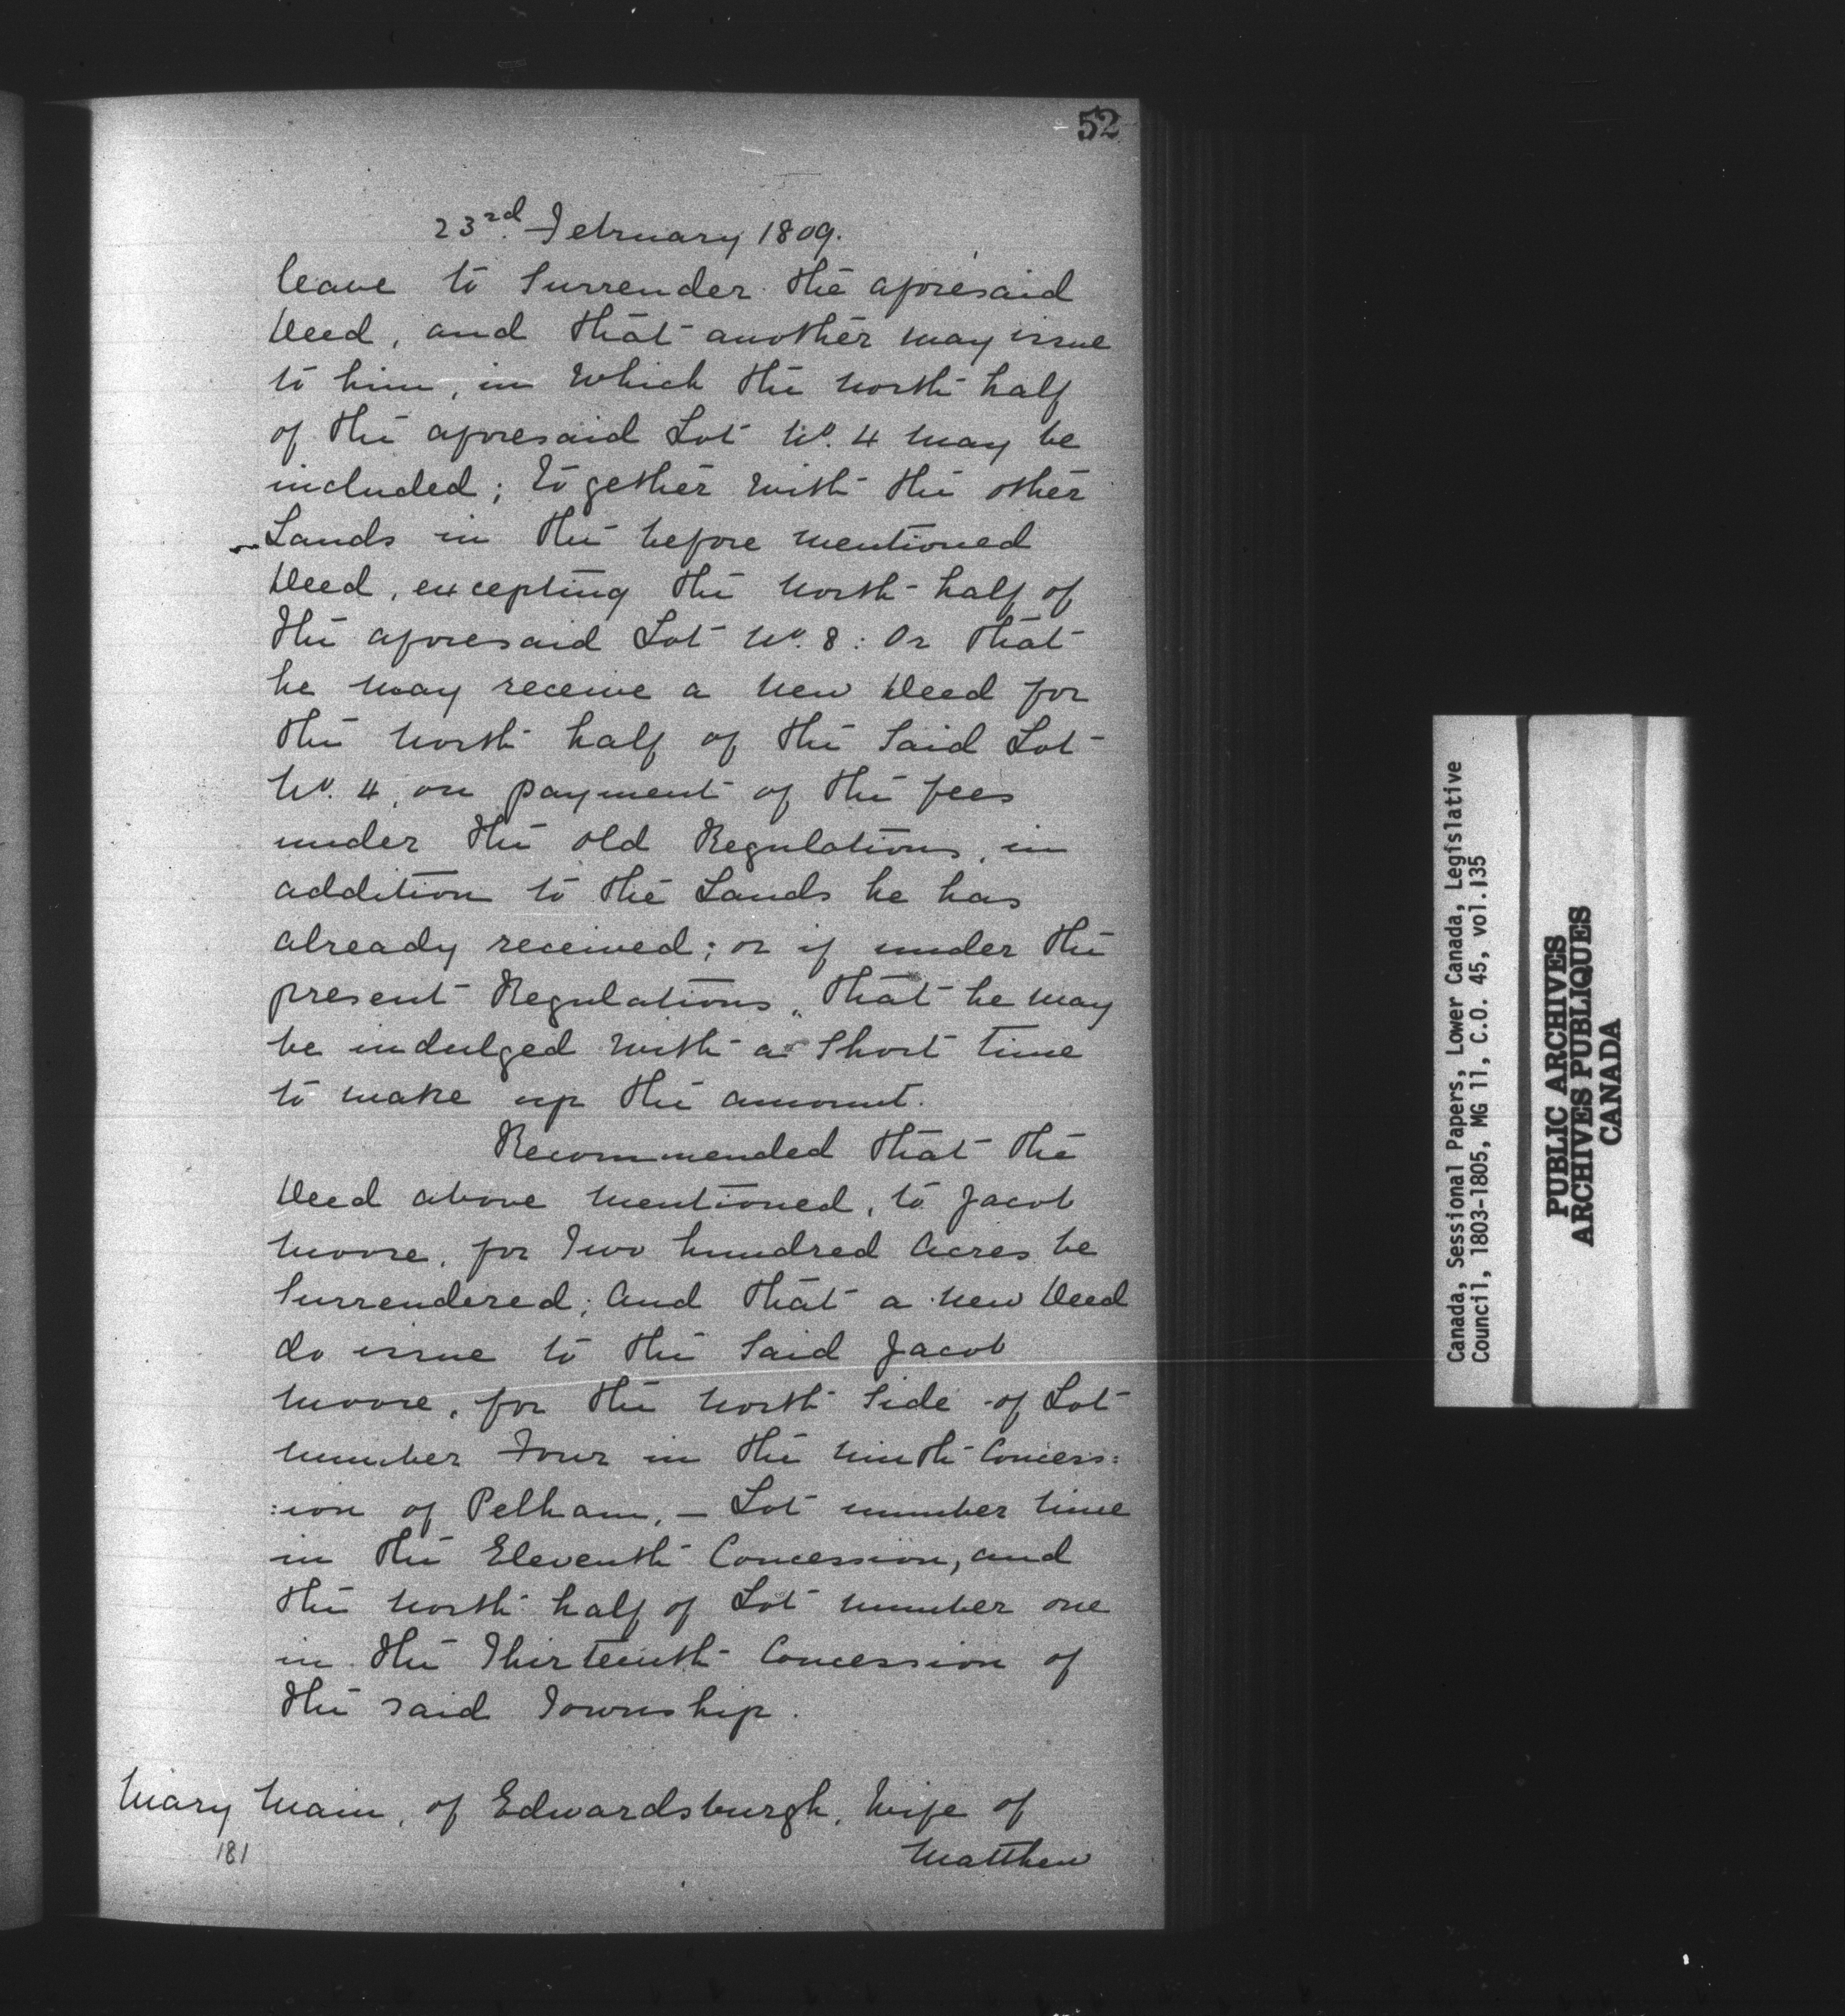 52
23rd. February 1809.
leave to Surrender the aforesaid
Deed, and that another may issue
to him, in which the North half
of the aforesaid Lot No. 4 may be
included; together with the other
Lands in the before mentioned
Deed, excepting the North half of
the aforesaid Lot No. 8: Or that
he may receive a New Deed for
the North half of the Said Lot
No. 4, on payment of the fees
under the old Regulations, in
addition to the Lands he has
already received; or if under the
present Regulations, that he may
be indulged with a Short time
to make up the amount.
Recommended that the
Deed above Mentioned, to Jacob
Moore, for Two hundred Acres be
Surrendered; And that a New Deed
do issue to the Said Jacob
Moore, for the North Side of Lot
number Four in the Ninth Concess:
:ion of Pelham, — Lot number Nine
in the Eleventh Concession, and
the North half of Lot Number one
in the Thirteenth Concession of
the said Township.
Mary Main, of Edwardsburgh, Wife of
181
Matthew
Canada, Sessional Papers, Lower Canada, Legislative
Council, 1803-1805, MG 11, C.O. 45, vol.135
PUBLIC ARCHIVES
ARCHIVES PUBLIQUES
CANADA